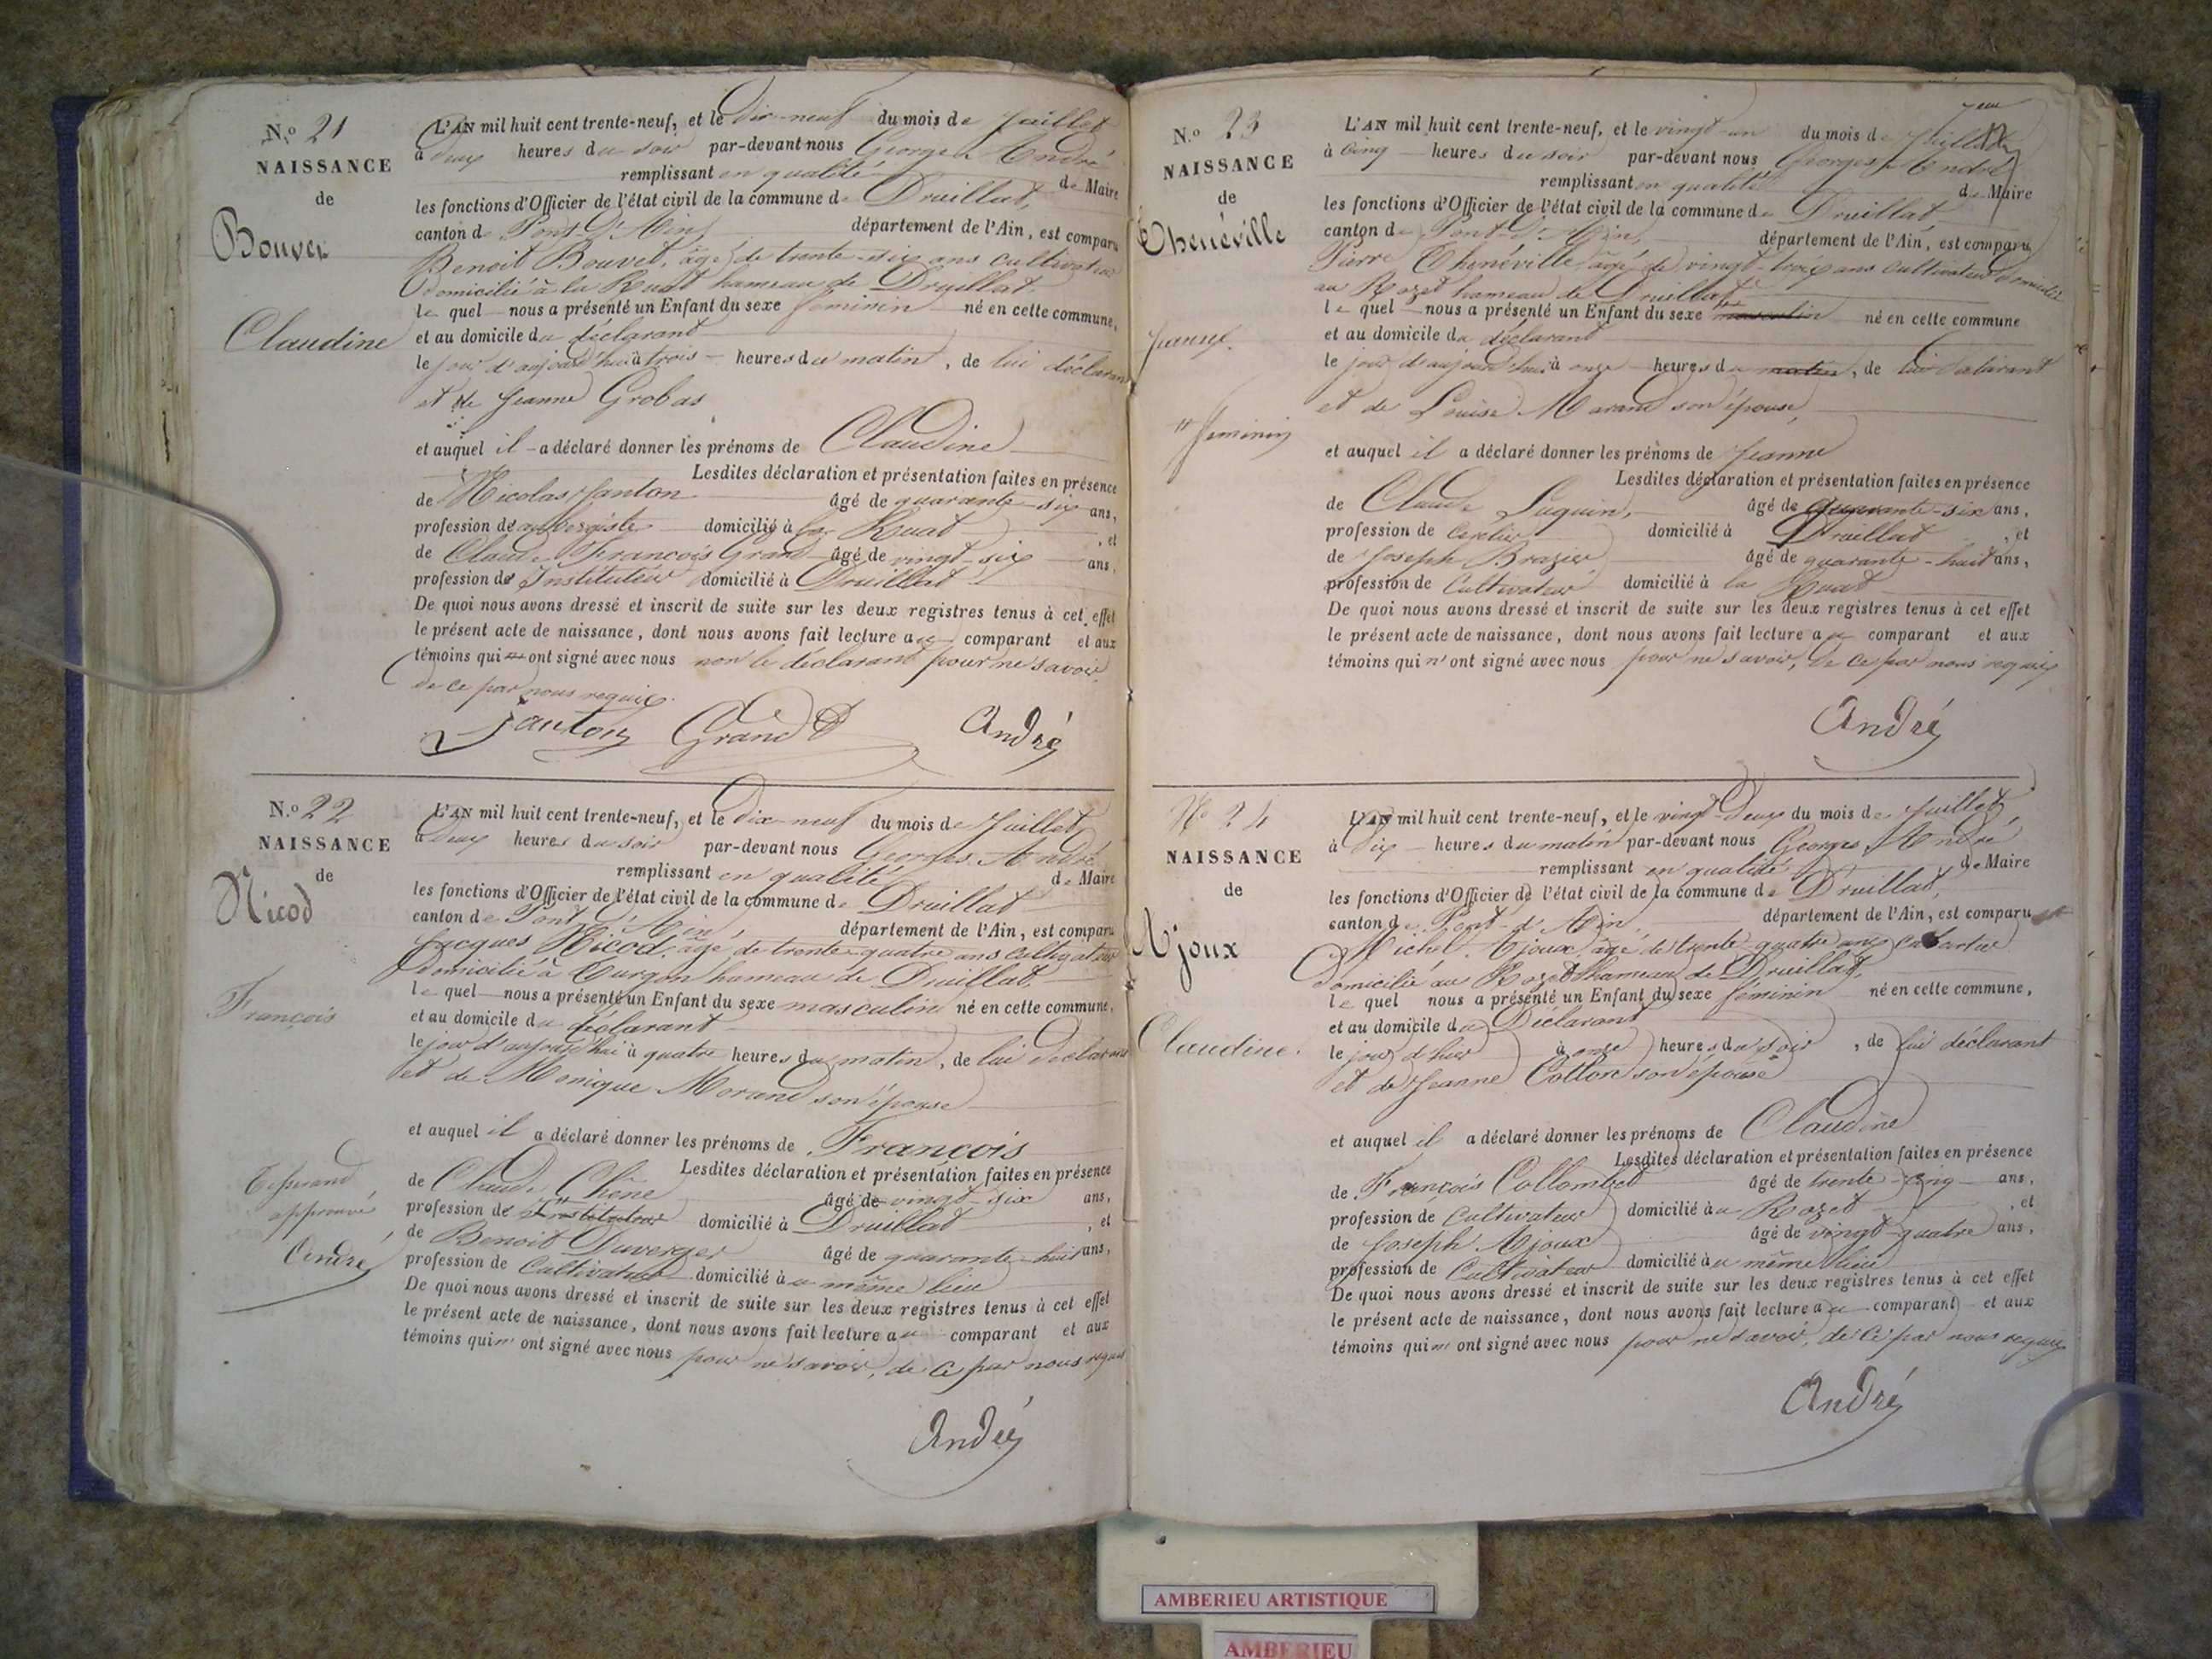 N.o 21
NAISSANCE
de
Bouvet
Claudine
L'AN mil huit cent trente-neuf, et le Dix-neuf du mois de Juillet
à deux heures du soir par-devant nous Georges André
remplissant en qualité de Maire
les fonctions d'Officier de l'état civil de la commune de Druillat,
canton de Pont D'Ain, département de l'Ain, est comparu
Benoit Bouvet, âgé de trente-six ans cultivateur
domicilié à la Ruat hameau de Druillat.
le quel nous a présenté un Enfant du sexe féminin né en cette commune,
et au domicile du déclarant
le jour d'aujourd'hui à trois heures du matin, de lui déclarant
et de Jeanne Grobas
et auquel il a déclaré donner les prénoms de Claudine
Lesdites déclaration et présentation faites en présence
de Nicolas Janton âgé de quarante-six ans,
profession de aubergiste domicilié à la Ruat, et
de Claude François Grand âgé de vingt-six ans,
profession de Instituteur domicilié à Druillat
De quoi nous avons dressé et inscrit de suite sur les deux registres tenus à cet effet
le présent acte de naissance, dont nous avons fait lecture au comparant et aux
témoins qui ont signé avec nous non le déclarant pour ne savoir
de ce par nous requis.
Janton Grand André
N.o 22
NAISSANCE
de
Nicod
François
L'AN mil huit cent trente-neuf, et le Dix-neuf du mois de Juillet,
à deux heures du soir par-devant nous Georges André
remplissant en qualité de Maire
les fonctions d'Officier de l'état civil de la commune de Druillat
canton de Pont D'Ain, département de l'Ain, est comparu
Jacques Nicod, âgé de trente-quatre ans cultivateur
domicilié à Turgon hameau de Druillat,
le quel nous a présenté un Enfant du sexe masculin né en cette commune,
et au domicile du déclarant
le jour d'aujourd'hui à quatre heures du matin, de lui déclarant
et de Monique Morand son épouse
et auquel il a déclaré donner les prénoms de François
Lesdites déclaration et présentation faites en présence
de Claude Chêne âgé de vingt-six ans,
profession de Instituteur domicilié à Druillat, et
de Benoit Duverger âgé de quarante-huit ans,
profession de Cultivateur domicilié au même lieu
De quoi nous avons dressé et inscrit de suite sur les deux registres tenus à cet effet
le présent acte de naissance, dont nous avons fait lecture au comparant et aux
témoins qui n'ont signé avec nous pour ne savoir, de ce par nous requis
Tisserand
approuvé
André
André
N.o 23
NAISSANCE
de
Thenéville
Jeanne.
féminin
L'AN mil huit cent trente-neuf, et le vingt-un du mois de Juillet
à cinq heures du soir par-devant nous Georges André
remplissant en qualité de Maire
les fonctions d'Officier de l'état civil de la commune de Druillat
canton de Pont-D'Ain, département de l'Ain, est comparu
Pierre Thenéville âgé de vingt-trois ans cultivateur domicilié
au Rozet hameau de Druillat
le quel nous a présenté un Enfant du sexe masculin né en cette commune
et au domicile du déclarant
le jour d'aujourd'hui à onze heures du matin, de lui déclarant
et de Louise Marand son épouse,
et auquel il a déclaré donner les prénoms de Jeanne
Lesdites déclaration et présentation faites en présence
de Claude Luquin, âgé de quarante-six ans,
profession de domicilié à Druillat, et
de Joseph Brazier âgé de quarante-huit ans,
profession de Cultivateur domicilié à la Ruat
De quoi nous avons dressé et inscrit de suite sur les deux registres tenus à cet effet
le présent acte de naissance, dont nous avons fait lecture au comparant et aux
témoins qui n'ont signé avec nous pour ne savoir, de ce par nous requis
André
N.o 24
NAISSANCE
de
Ajoux
Claudine.
L'AN mil huit cent trente-neuf, et le vingt-Deux du mois de Juillet,
à Dix heures du matin par-devant nous Georges André
remplissant en qualité de Maire
les fonctions d'Officier de l'état civil de la commune de Druillat,
canton de Pont-d'Ain, département de l'Ain, est comparu
Michel Ajoux âgé de trente-quatre ans
Domicilié au Rozet hameau de Druillat,
le quel nous a présenté un Enfant du sexe féminin né en cette commune,
et au domicile du Déclarant
le jour d'hier à onze heures du soir, de lui déclarant
et de Jeanne Collon son épouse
et auquel il a déclaré donner les prénoms de Claudine
Lesdites déclaration et présentation faites en présence
de François Collombet âgé de trente-cinq ans,
profession de Cultivateur domicilié au Rozet, et
de Joseph Ajoux âgé de vingt-quatre ans,
profession de Cultivateur domicilié au même lieu
De quoi nous avons dressé et inscrit de suite sur les deux registres tenus à cet effet
le présent acte de naissance, dont nous avons fait lecture au comparant et aux
témoins qui n'ont signé avec nous pour ne savoir, de ce par nous requis
André
AMBERIEU ARTISTIQUE
AMBERIEU